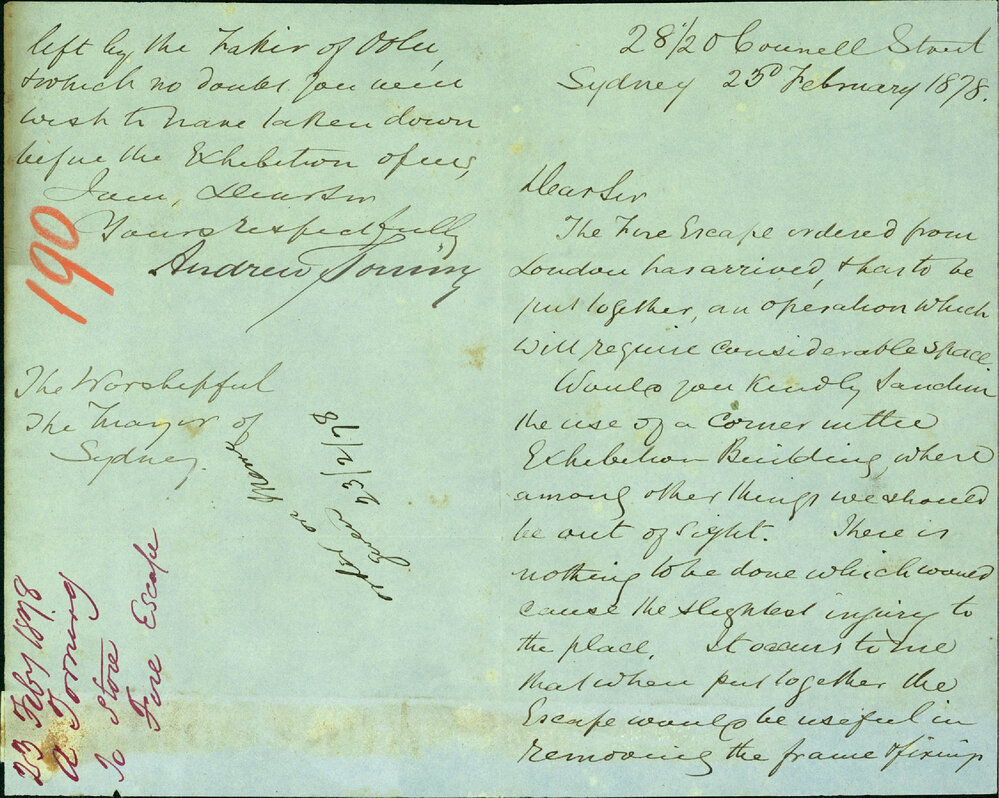 28/2 O'Connell Street
Sydney 23d February 1878.
Dear Sir
The Fire Escape ordered from
London has arrived, & has to be
put together, an operation which
will require considerable space.
Would you kindly sanction
the use of a corner in the
Exhibition Building, where
among other things we should
be out of sight. There is
nothing to be done which would
cause the slightest injury to
the place. It occurs to me
that when put together the
Escape would be useful in
removing the frame & fixings
left by the Fakir of Oolu,
& which no doubt you will
wish to have taken down
before the Exhibition opens,
I am, Dear Sir
Yours respectfully
Andrew Torning
190
The Worshipful
The Mayor of
Sydney.
23/2/78
23 Feby 1878
A Torning
To Store
Fire Escape